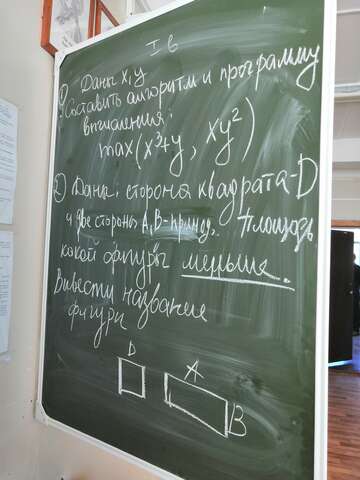 I в
1) Даны x, y
Составить алгоритм и программу
вычисления:
max(x³+y, xy²)
2) Даны: сторона квадрата - D
и две стороны A, B - прямоуг. Площадь
какой фигуры меньше.
Вывести название
фигуры
D
A
B